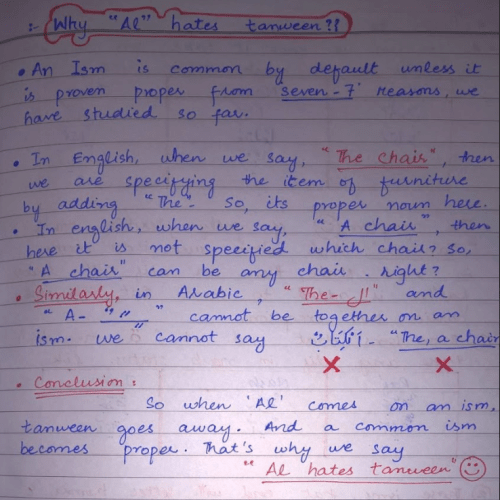 :- Why "Al" hates tanween??
• An Ism is common by default unless it
is proven proper from seven-7 reasons, we
have studied so far.
• In English, when we say, "The chair", then
we are specifying the item of furniture
by adding "The"- So, its proper noun here.
• In english, when we say, "A chair", then
here it is not specified which chair? So,
"A chair" can be any chair. right?
• Similarly, in Arabic, "The-ال" and
"A- ـٌـٍـً" cannot be together on an
ism. we cannot say اَلْكِتَابٌ - "The, a chair
× ×
• Conclusion:
So when 'Al' comes on an ism,
tanween goes away. And a common ism
becomes proper. That's why we say
"Al hates tanween"